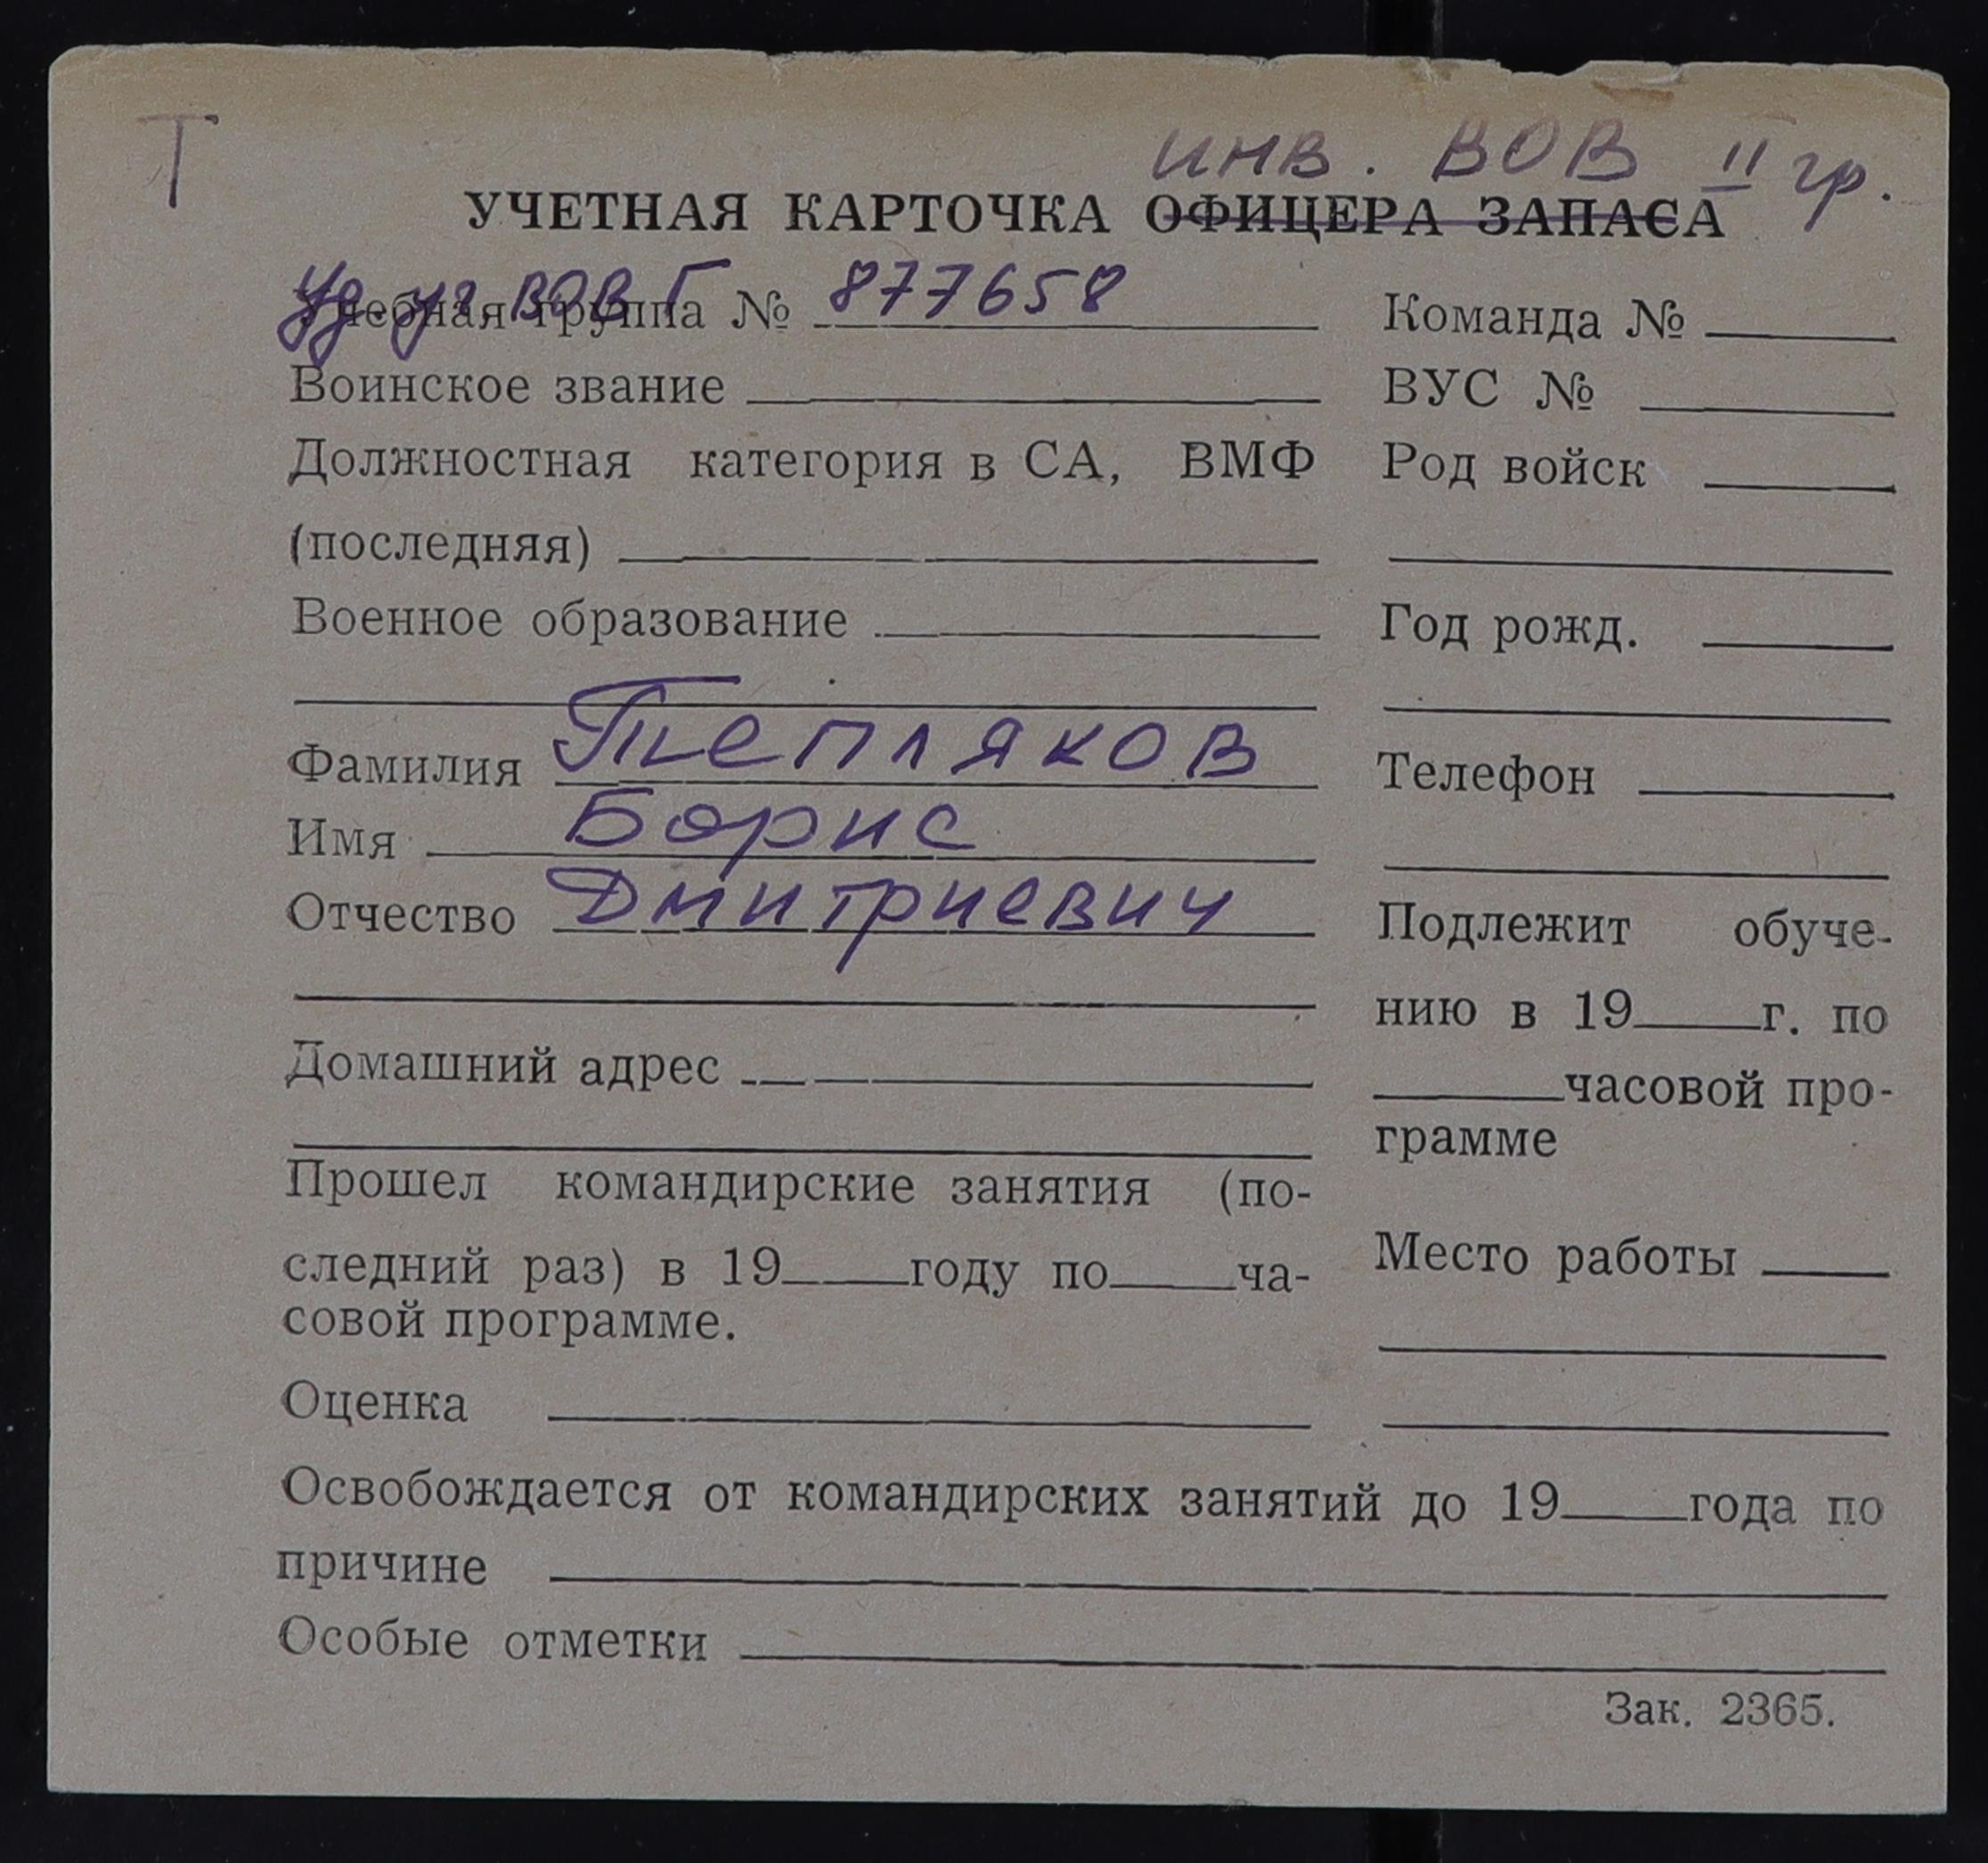 Т
инв. ВОВ II гр.
УЧЕТНАЯ КАРТОЧКА ОФИЦЕРА ЗАПАСА
Уд. уч. ВОВ Г
Учебная группа № 877658
Команда №
Воинское звание
ВУС №
Должностная категория в СА, ВМФ
Род войск
(последняя)
Военное образование
Год рожд.
Фамилия Тепляков
Телефон
Имя Борис
Отчество Дмитриевич
Подлежит обуче-
нию в 19 г. по
Домашний адрес
часовой про-
грамме
Прошел командирские занятия (по-
следний раз) в 19 году по ча-
совой программе.
Место работы
Оценка
Освобождается от командирских занятий до 19 года по
причине
Особые отметки
Зак. 2365.